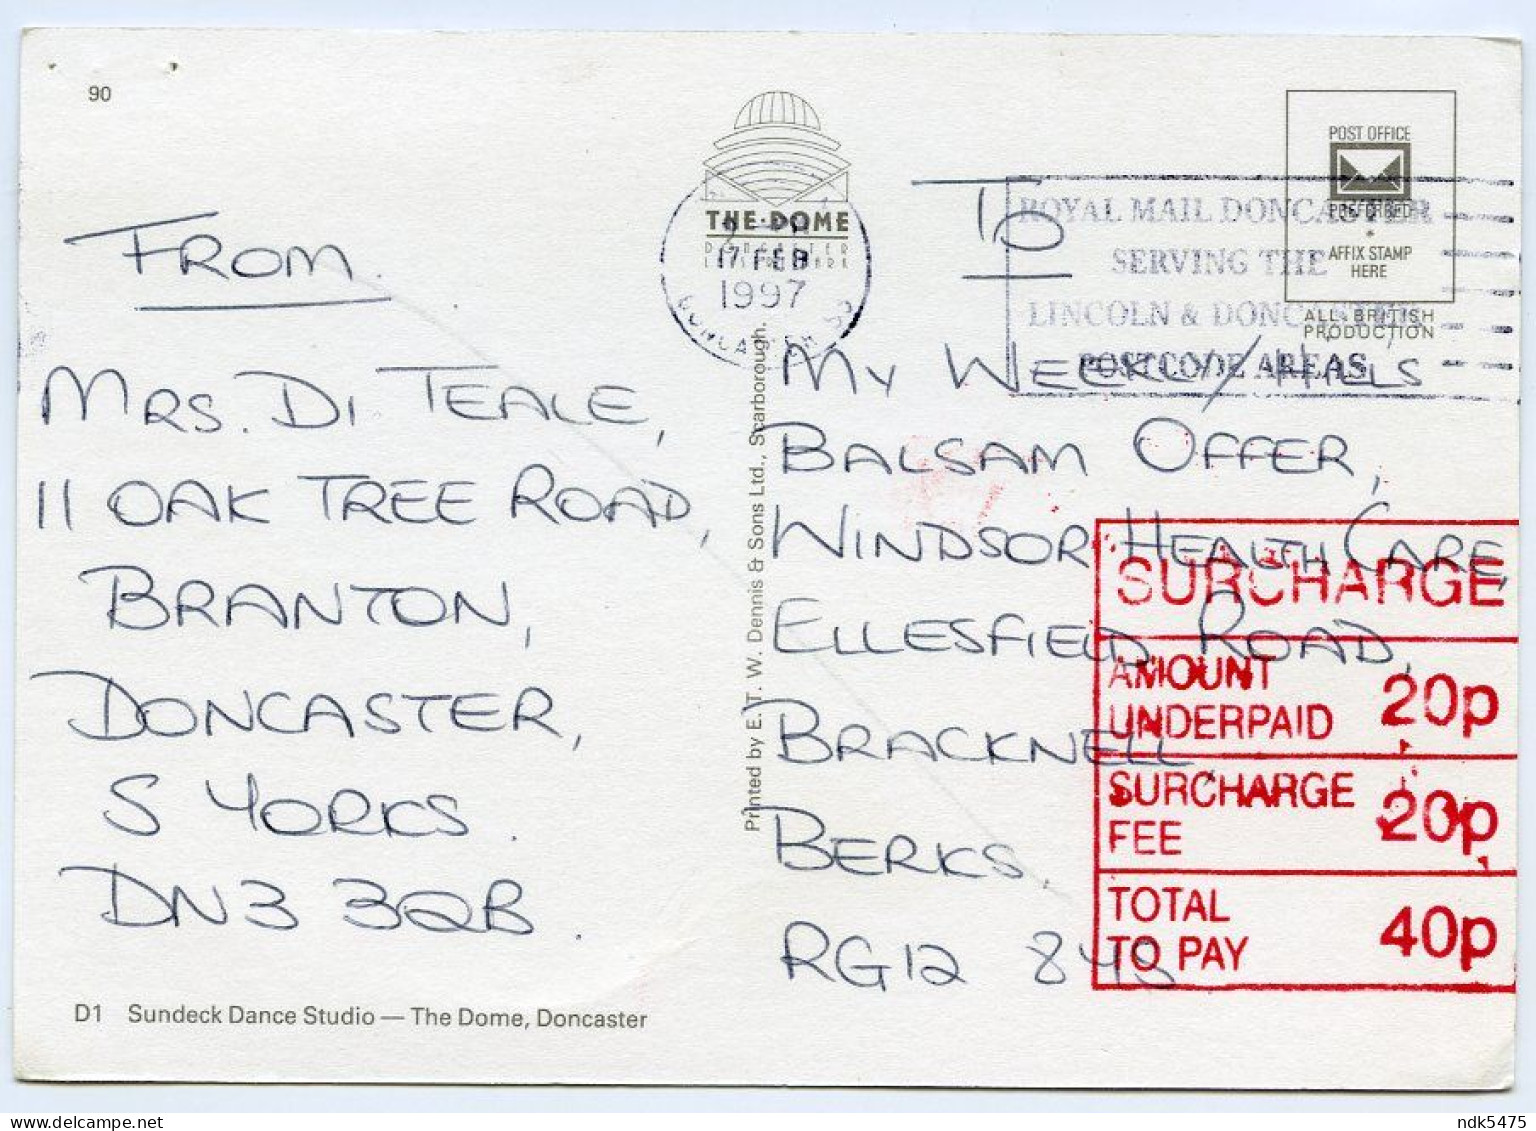 90
THE·DOME
DONCASTER
LEISURE PARK
17 FEB
1997
DONCASTER
POST OFFICE
PREFERRED
AFFIX STAMP
HERE
ALL BRITISH
PRODUCTION
ROYAL MAIL DONCASTER
SERVING THE
LINCOLN & DONCASTER
POSTCODE AREAS
FROM
MRS. DI TEALE,
11 OAK TREE ROAD,
BRANTON,
DONCASTER,
S YORKS.
DN3 3QB.
D1 Sundeck Dance Studio — The Dome, Doncaster
Printed by E. T. W. Dennis & Sons Ltd., Scarborough.
TO
MY WEEKLY/HILLS
BALSAM OFFER,
WINDSOR HEALTH CARE,
ELLESFIELD ROAD,
BRACKNELL
BERKS.
RG12
SURCHARGE
AMOUNT
UNDERPAID 20p
SURCHARGE
FEE 20p
TOTAL
TO PAY 40p
delcampe.net
ndk5475